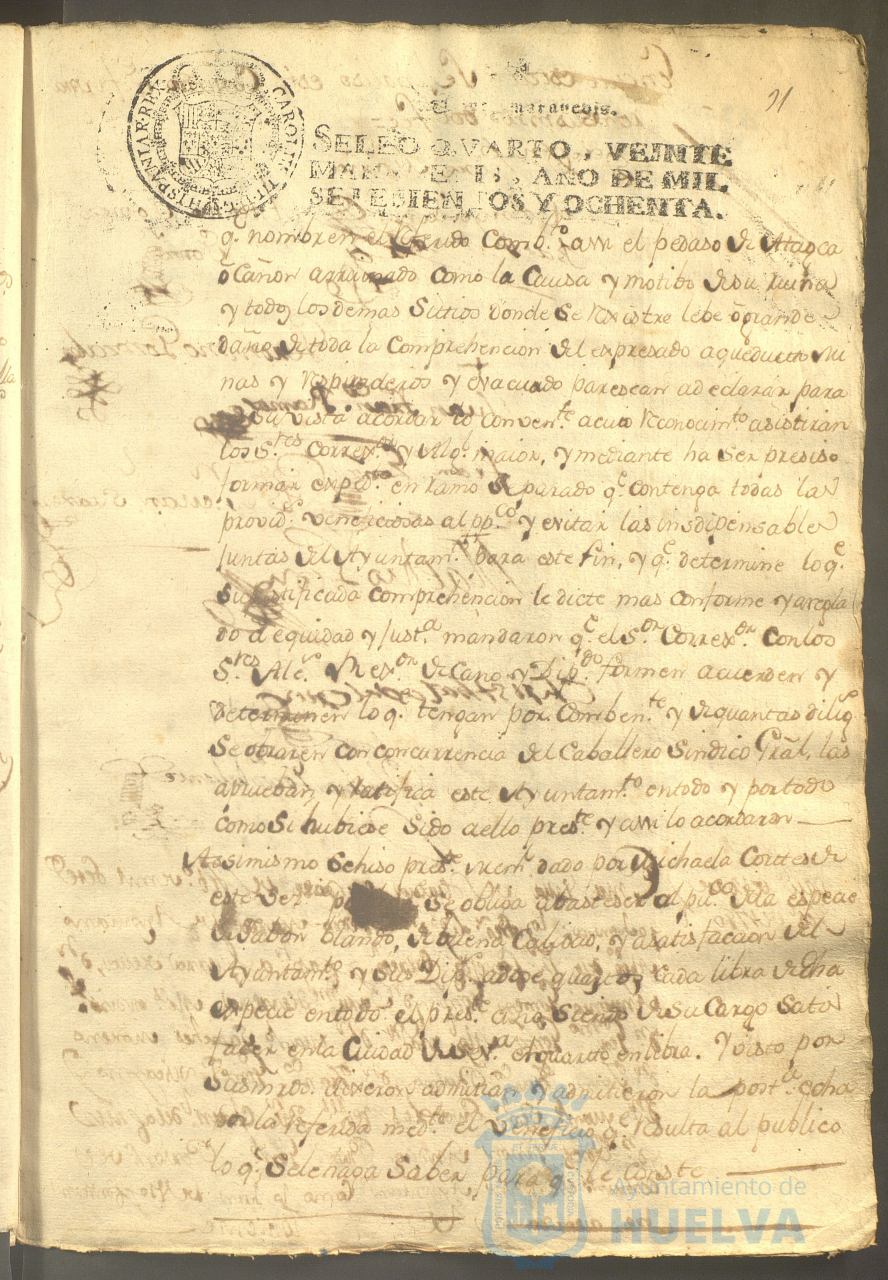 91
CAROLUS III D.G. HISPANIAR. REX
maravedis.
SELLO QVARTO, VEINTE
MARAVEDIS, AÑO DE MIL
SETECIENTOS Y OCHENTA.
q.e nombren el Comb.to assi el pedaso de Atagea
ò Cañon arruinado como la Causa y motibo de su ruina
y todos los demas Sitios donde Se rexistre lebe ò grande
daño de toda la Comprehencion del expresado aqueducto Mi
nas y Respiraderos y evacuado parescan adeclarar para
su vista acordar lo conven.te a cuio Reconocim.to asistiran
los S.res Correx.or y Alg.l maior, y mediante ha Ser presiso
formar exped.te en ramo Separado q.e contenga todas las
provid.s veneficiosas al pp.co y evitar las insdipensables
Juntas del Ayuntam.to para este fin, y q.e determine lo q.e
Su Justificada comprehencion le dicte mas conforme y aregla
do á equidad y Just.a mandaron q.e el S.or Correx.or con los
S.res Alc.e Rex.or Decano y Dip.do formen acuerden y
determinen lo q.e tengan por Comben.te y de quantas dilig.s
Se obraren con concurrencia del Caballero Sindico Gral, las
aprueban y ratifica este Ayuntam.to en todo y por todo
como Si hubiese Sido aello pres.te y assi lo acordaron
Assimismo Sehiso pres.te mem.l dado por Michaela Cortes de
este Vez. Se obliga abasteser al pu.co de la especie
de Jabon blando, de buena Calidad, y a satisfacion del
Ayuntam.to y Sus Dip. adose quartos cada libra de dha
especie en todo el pres.te año Siendo de Su Cargo Satis
facer en la Ciudad de Sev.a el quarto en libra. Y visto por
Susmrds. dixeron admitian y admitieron la post.a echa
por la referida med.te el veneficio q.e resulta al publico
lo q.e Selehaga Saber para q.e le Conste
Ayuntamiento de
HUELVA